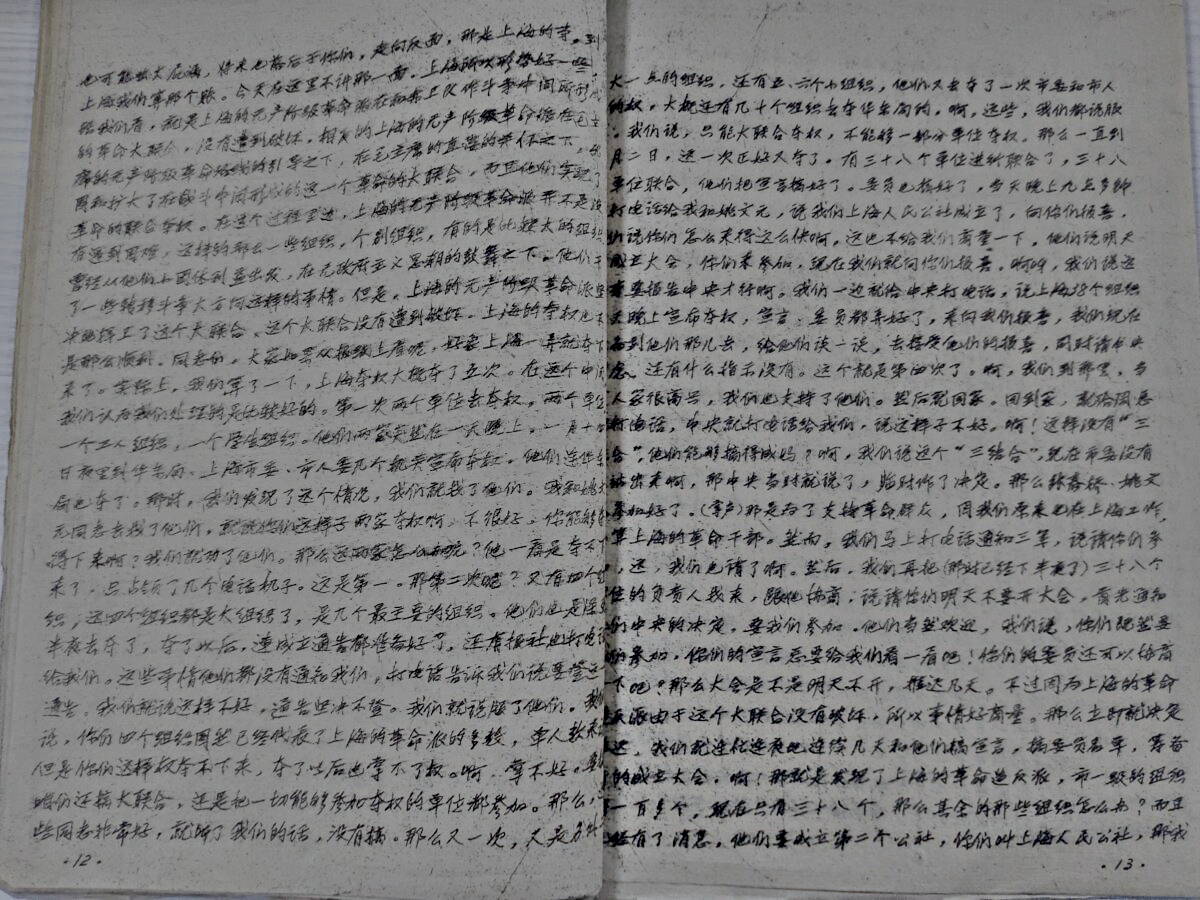 也可能出大乱子，将来也落后于你们，走向反面，那是上海的事。到
上海我们算那个账。今天在这里不讲那一面。上海所以形势好一些，
据我们看，就是上海的无产阶级革命派在和赤卫队作斗争中间所形成
的革命大联合，没有遭到破坏。相反的上海的无产阶级革命派在毛主
席的无产阶级革命路线的引导之下，在毛主席的直接的关怀之下，巩
固和扩大了在战斗中间形成的这一个革命的大联合，而且他们实现了
革命的联合夺权。在这个过程里边，上海的无产阶级革命派并不是没
有遇到困难，这样的那么一些组织，个别组织，有的是比较大的组织
曾经从他们小团体利益出发，在无政府主义思潮的鼓舞之下。他们干
了一些转移斗争大方向这样的事情。但是，上海的无产阶级革命派坚
决地捍卫了这个大联合、这个大联合没有遭到破坏。上海的夺权也不
是那么顺利。同志们，大家如果从报纸上看呢，好象上海一弄就夺下
来了。实际上，我们算了一下，上海夺权大概夺了五次。在这个中间
我们认为我们处理的是比较好的。第一次两个单位去夺权，两个单位
一个工人组织，一个学生组织。他们两家突然在一天晚上。一月十四
日夜里到华东局、上海市委、市人委几个机关宣布夺权。他们连华东
局也夺了。那时，我们发现了这个情况，我们就找了他们。我和姚文
元同志去找了他们，就说你们这样子两家夺权啊，不很好，你能够夺
得下来啊？我们就劝了他们。那么这两家怎么办呢？他一看是夺不下
来了，只占领了几个电话机子。这是第一。那第二次呢？又有四个组
织，这四个组织都是大组织了，是几个最主要的组织。他们也是深更
半夜去夺了，夺了以后，连成立通告都准备好了，还有报社也打电话
给我们。这些事情他们都没有通知我们，打电话告诉我们说要登这
通告。我们就说这样不好，通告坚决不登。我们就说服了他们。我们
说，你们四个组织固然已经代表了上海的革命派的多数，单人数来说
但是你们这样权夺不下来，夺了以后也掌不了权。啊，掌不好。
咱们还搞大联合，还是把一切能够参加夺权的单位都参加。那么，
些同志非常好，就听了我们的话，没有搞。那么又一次，又是另外
·12·
大一点的组织，还有五、六个小组织，他们又去夺了一次市委和市人
的权。大概还有几十个组织去夺华东局的，啊，这些，我们都说服
。我们说，只能大联合夺权，不能够一部分单位夺权。那么一直到
月二日，这一次正好又夺了。有三十八个单位进行联合了，三十八
单位联合，他们把宣言搞好了。委员也搞好了，当天晚上九点多钟
打电话给我和姚文元，说我们上海人民公社成立了，向你们报喜，
们说你们怎么来得这么快啊。这也不给我们商量一下。他们说明天
成立大会，你们来参加，现在我们就向你们报喜。啊呀，我们说这
需要报告中央才行啊。我们一边就给中央打电话，说上海38个组织
天晚上宣布夺权，宣言、委员都弄好了，来向我们报喜，我们现在
到他们那儿去，给他们谈一谈，去接受他们的报喜，同时请示中央
，还有什么指示没有。这个就是第四次了。啊，我们到那里，当
人家很高兴，我们也支持了他们。然后就回家。回到家，就给
打电话，中央就打电话给我们，说这样子不好。啊！这样没有“三
合”，他们能够搞得成吗？啊，我们说这个“三结合”，现在市委没有
站出来啊，那中央当时就说了，临时作了决定。那么张春桥、姚文
参加好了。（掌声）那是为了支持革命群众，因我们原来也在上海工作，
算上海的革命干部。然而，我们马上打电话通知三军，说请你们参
，这，我们也请了啊。然后，我们再把（那时已经下半夜了）三十八个
位的负责人找来，跟他协商，说请你们明天不要开大会，首先通知
们中央的决定，要我们参加。他们当然欢迎，我们说，你们既然要
们参加，你们的宣言总要给我们看一看吧！你们的委员还可以协商
下吧？那么大会是不是明天不开，推迟几天。不过因为上海的革命
反派由于这个大联合没有破坏，所以事情好商量。那么立即就决定
迟，我们就连住连夜地连续几天和他们搞宣言，搞委员名单，筹备
的成立大会，啊！那就是发现了上海的革命造反派，市一级的组织
一百多个，现在只有三十八个，那么其余的那些组织怎么办？而且
经有了消息，他们要成立第二个公社，你们叫上海人民公社，那我
·13·